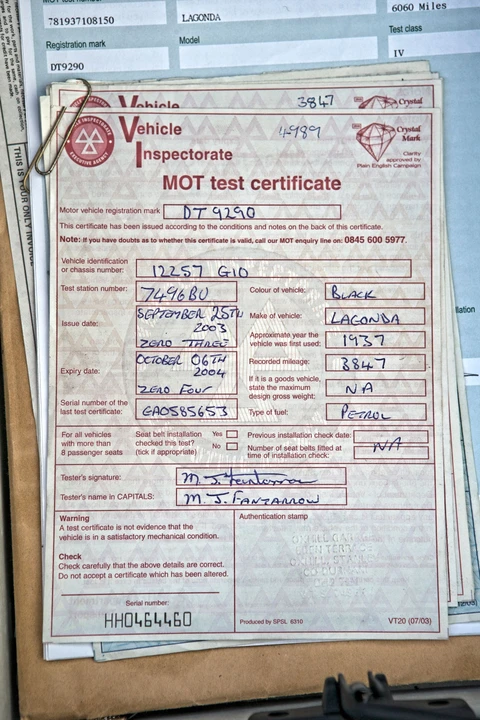 781937108150
LAGONDA
6060 Miles
Registration mark
Model
Test class
DT9290
IV
THIS IS YOUR ONLY INVOICE
Vehicle
3847
Crystal
Vehicle
Inspectorate
4989
Crystal
Mark
Clarity
approved by
Plain English Campaign
MOT test certificate
Motor vehicle registration mark
DT 9290
This certificate has been issued according to the conditions and notes on the back of this certificate.
Note: If you have doubts as to whether this certificate is valid, call our MOT enquiry line on: 0845 600 5977.
Vehicle identification
or chassis number:
12257 G10
Test station number:
7496BU
Colour of vehicle:
BLACK
Issue date:
SEPTEMBER 25TH
2003
ZERO THREE
Make of vehicle:
LAGONDA
Approximate year the
vehicle was first used:
1937
Expiry date:
OCTOBER 06TH
2004
ZERO FOUR
Recorded mileage:
3847
If it is a goods vehicle,
state the maximum
design gross weight:
NA
Serial number of the
last test certificate:
GA0585653
Type of fuel:
PETROL
For all vehicles
with more than
8 passenger seats
Seat belt installation
checked this test?
(tick if appropriate)
Yes
No
Previous installation check date:
Number of seat belts fitted at
time of installation check:
NA
Tester's signature:
Tester's name in CAPITALS:
M. J. FANTARROW
Warning
A test certificate is not evidence that the
vehicle is in a satisfactory mechanical condition.
Check
Check carefully that the above details are correct.
Do not accept a certificate which has been altered.
Authentication stamp
Serial number:
HH0464460
Produced by SPSL 6310
VT20 (07/03)